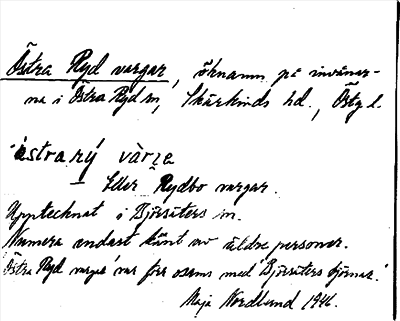 Östra Ryd vargar, öknamn på invånar-
na i Östra Ryd sn, Skärkinds hd., Östg l.
östra rý vàrʒa
– Eller Rydbo vargar.
Upptecknat i Björsäters sn.
Numera endast känt av äldre personer.
'Östra Ryd vargs' var förr osams med 'Björsäters björnar.'
Maja Nordlund 1946.